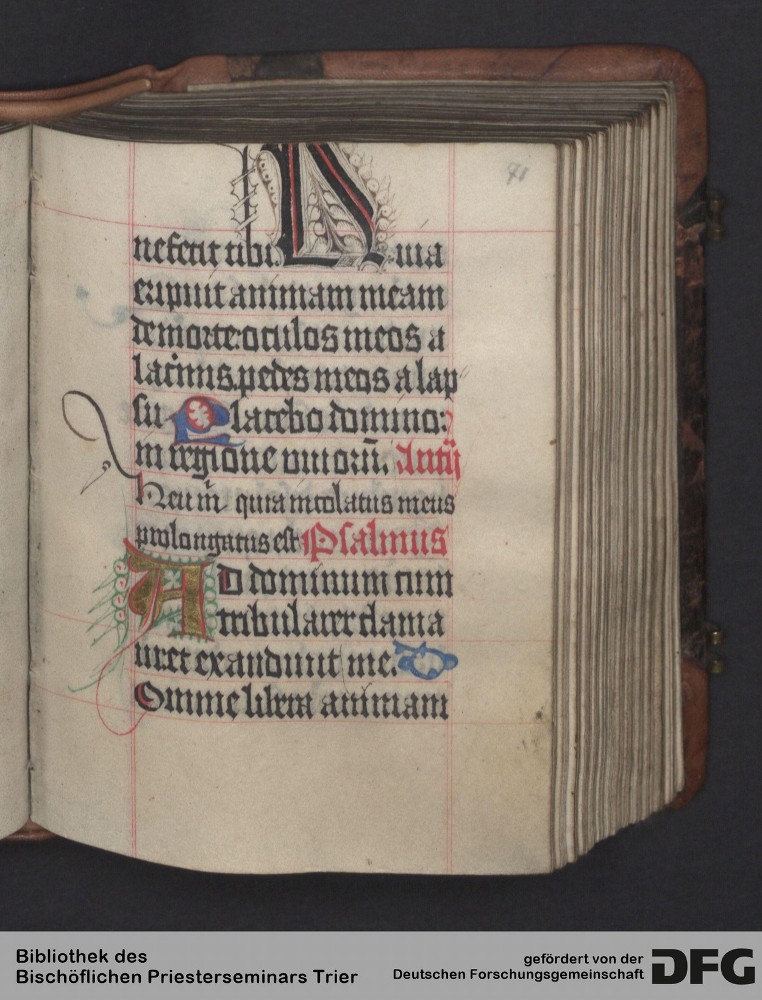 91
nefecit tibi. Quia
eripuit animam meam
de morte oculos meos a
lacrimis. pedes meos a lap
su. Placebo domino:
in regione uiuorū. Antiᵽ
Heu m̄ quia incolatus meus
prolongatus est Psalmus
AD dominum cum
tribularer clama
ui et exaudiuit me. D
Omine libera animam
Bibliothek des
Bischöflichen Priesterseminars Trier
gefördert von der
Deutschen Forschungsgemeinschaft
DFG